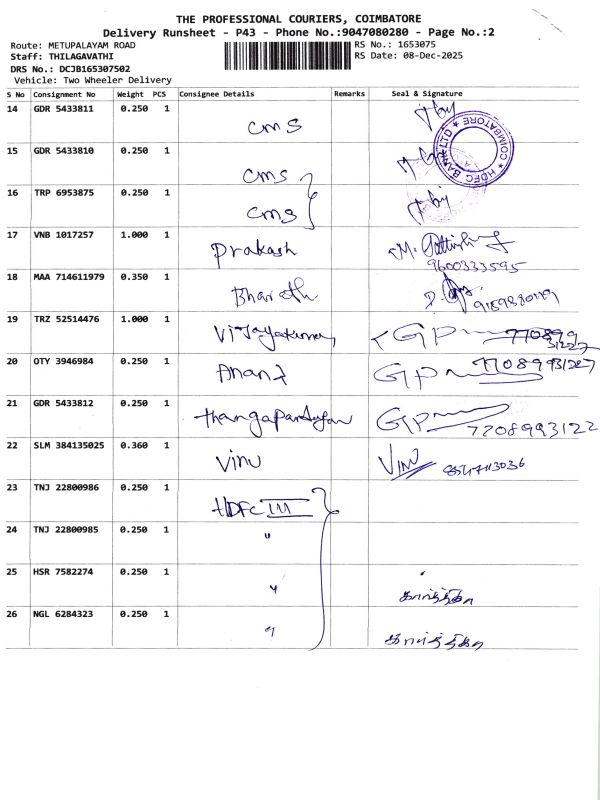 THE PROFESSIONAL COURIERS, COIMBATORE
Delivery Runsheet - P43 - Phone No.:9047080280 - Page No.:2
Route: METUPALAYAM ROAD RS No.: 1653075
Staff: THILAGAVATHI RS Date: 08-Dec-2025
DRS No.: DCJB165307502
Vehicle: Two Wheeler Delivery
S No Consignment No Weight PCS Consignee Details Remarks Seal & Signature
14 GDR 5433811 0.250 1 cms
HDFC BANK LTD * COIMBATORE *
15 GDR 5433810 0.250 1 cms
16 TRP 6953875 0.250 1 cms
17 VNB 1017257 1.000 1 Prakash M.
9600333595
18 MAA 714611979 0.350 1 Bharath D.
19 TRZ 52514476 1.000 1 Vijayakumar GPM
20 OTY 3946984 0.250 1 Anand GPM
21 GDR 5433812 0.250 1 Thangapandiyan GPM
22 SLM 384135025 0.360 1 Vinu Vinu
23 TNJ 22800986 0.250 1 HDFC III
24 TNJ 22800985 0.250 1 "
25 HSR 7582274 0.250 1 " கார்த்திகா
26 NGL 6284323 0.250 1 " கார்த்திகா